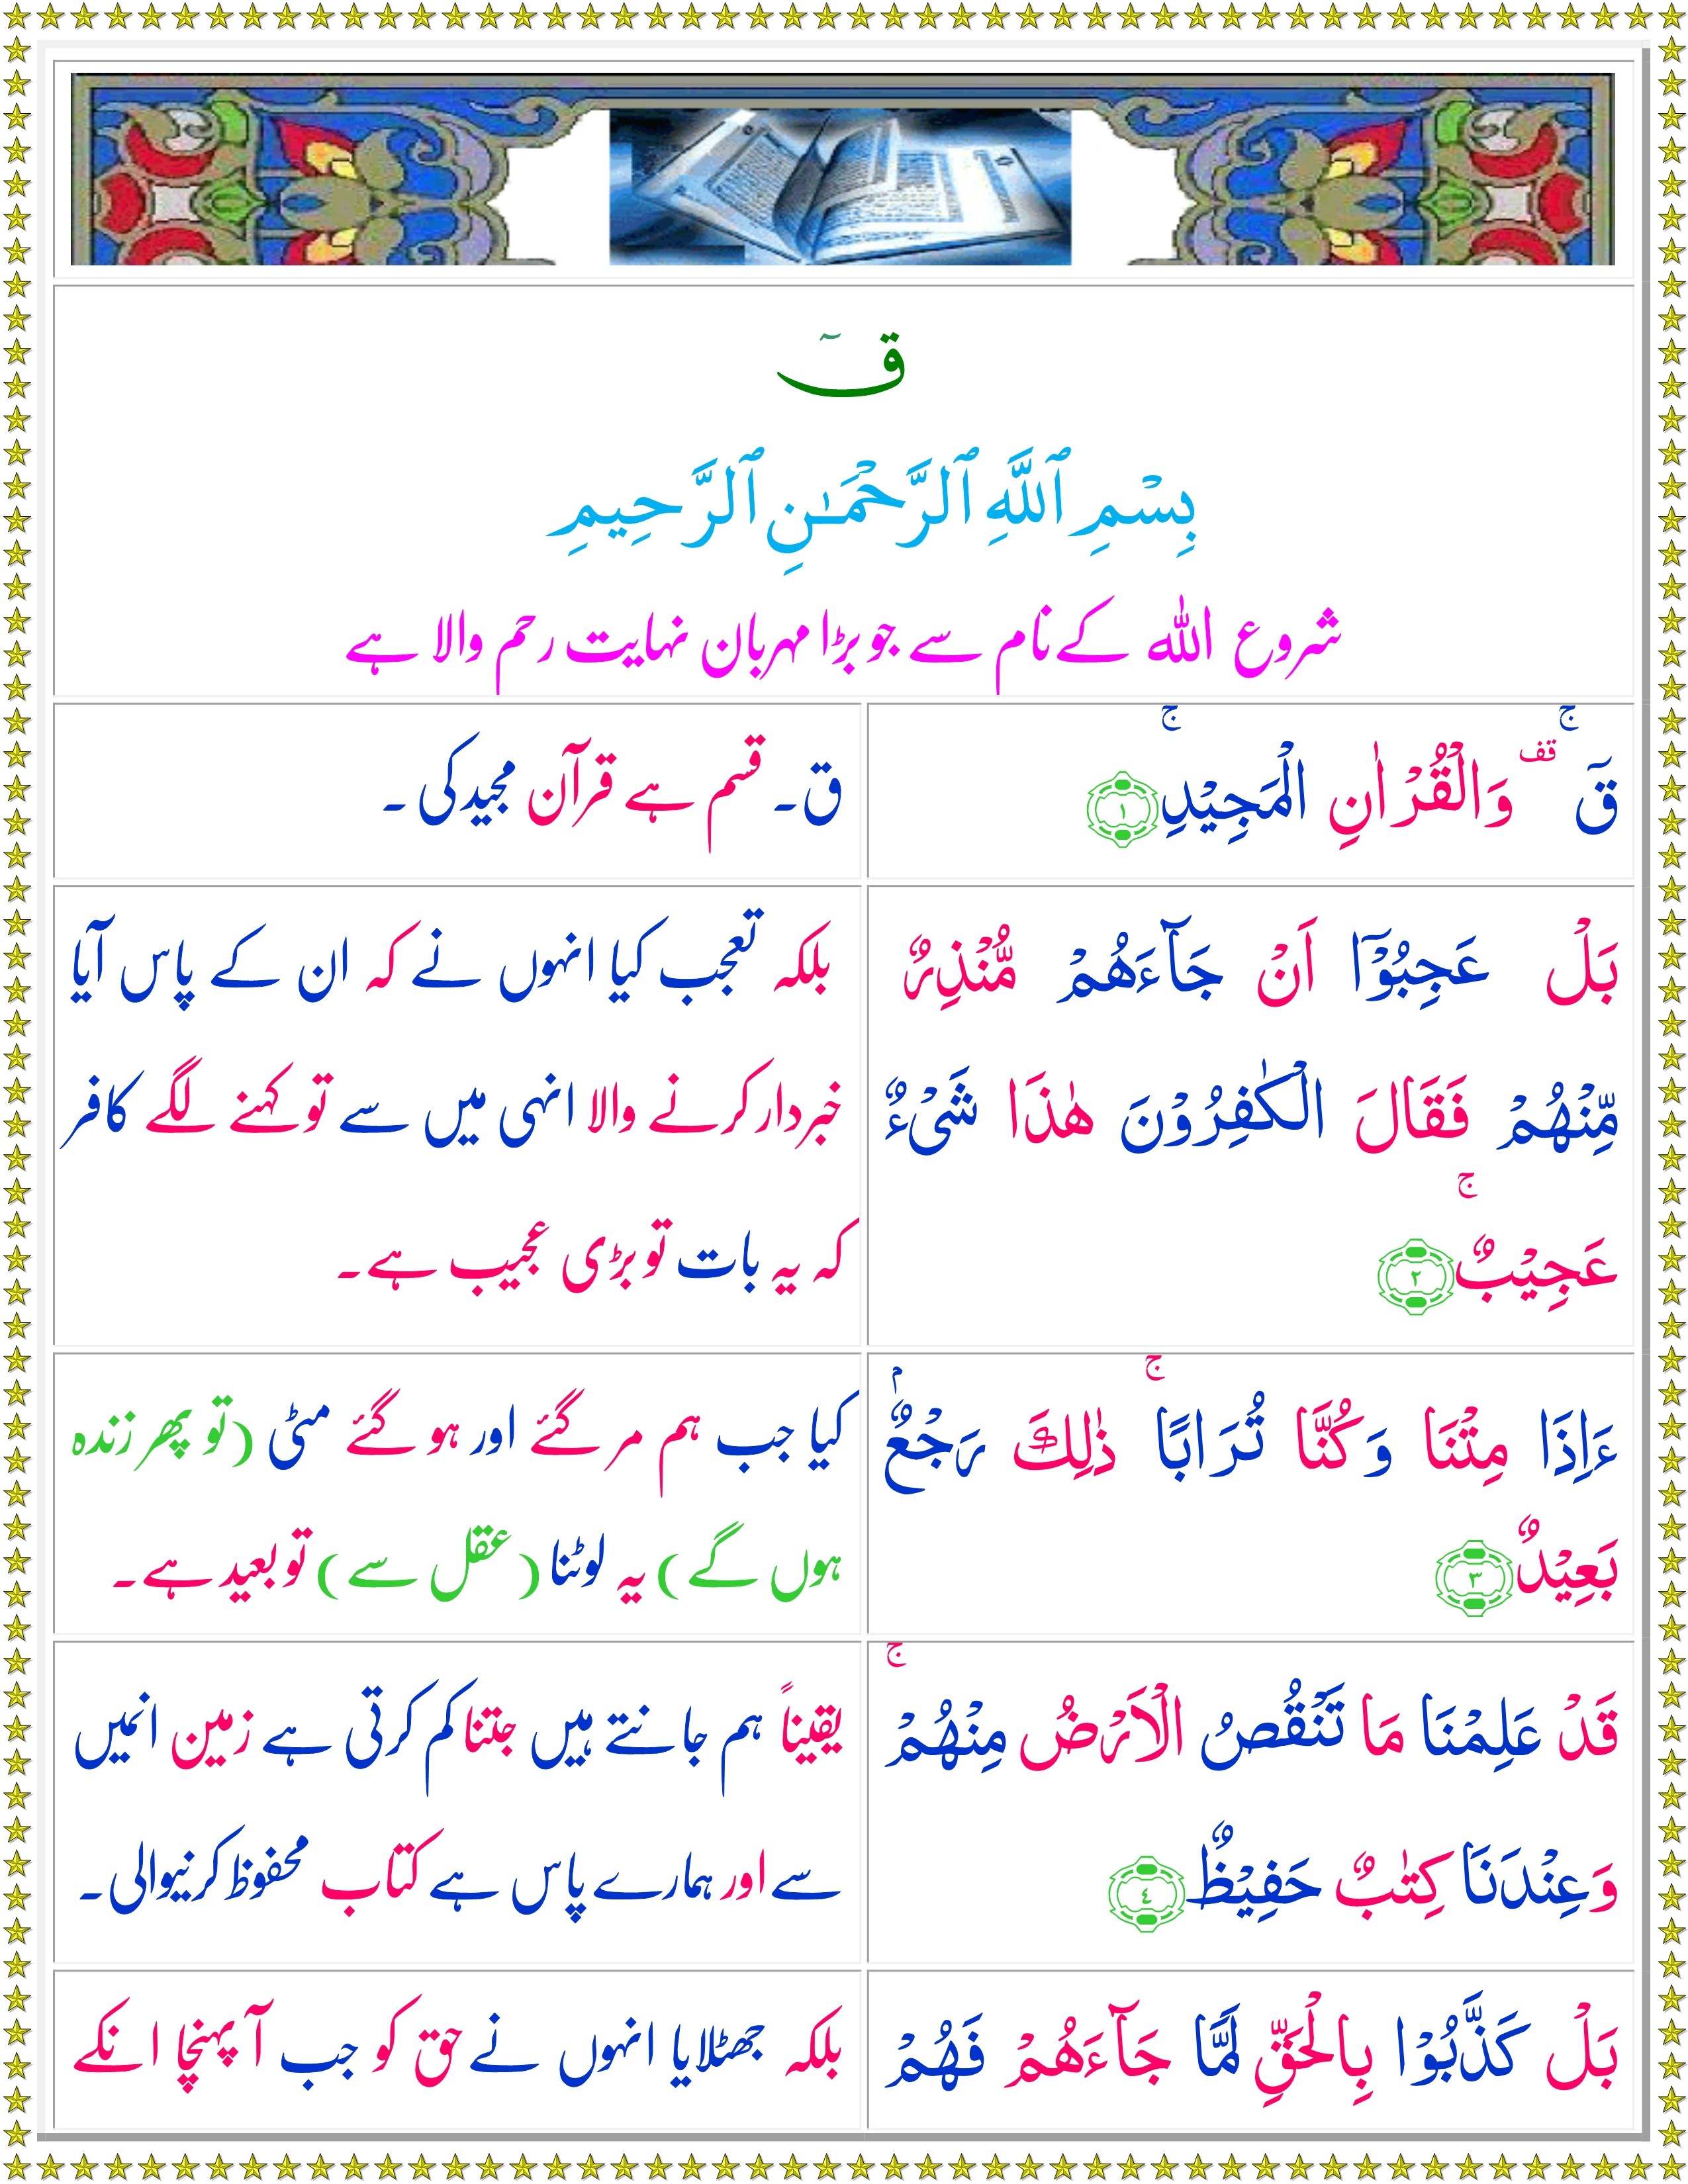 قٓ
بِسْمِ ٱللَّهِ ٱلرَّحْمَـٰنِ ٱلرَّحِيمِ
شروع اللہ کے نام سے جو بڑا مہربان نہایت رحم والا ہے
قٓ ۚ قف وَالْقُرْاٰنِ الْمَجِيْدِ ۚ ﴿١﴾
ق۔ قسم ہے قرآن مجید کی ۔
بَلْ عَجِبُوْۤا اَنْ جَآءَهُمْ مُّنْذِرٌ
مِّنْهُمْ فَقَالَ الْكٰفِرُوْنَ هٰذَا شَیْءٌ
عَجِيْبٌ ۚ ﴿٢﴾
بلکہ تعجب کیا انہوں نے کہ ان کے پاس آیا
خبردار کرنے والا انہی میں سے تو کہنے لگے کافر
کہ یہ بات تو بڑی عجیب ہے۔
ءَاِذَا مِتْنَا وَكُنَّا تُرَابًا ۚ ذٰلِكَ رَجْعٌۢ
بَعِيْدٌ ﴿٣﴾
کیا جب ہم مر گئے اور ہو گئے مٹی (تو پھر زندہ
ہوں گے) یہ لوٹنا (عقل سے) تو بعید ہے۔
قَدْ عَلِمْنَا مَا تَنْقُصُ الْاَرْضُ مِنْهُمْ ۚ
وَعِنْدَنَا كِتٰبٌ حَفِيْظٌ ﴿٤﴾
یقیناً ہم جانتے ہیں جتنا کم کرتی ہے زمین انمیں
سے اور ہمارے پاس ہے کتاب محفوظ کرنیوالی۔
بَلْ كَذَّبُوْا بِالْحَقِّ لَمَّا جَآءَهُمْ فَهُمْ
بلکہ جھٹلایا انہوں نے حق کو جب آ پہنچا انکے